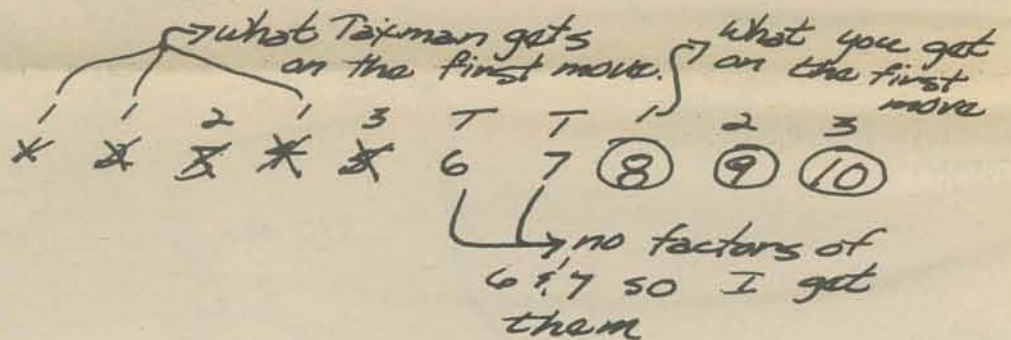 what Taxman gets
on the first move.
what you get
on the first
move
1 1 2 1 3 T T 1 2 3
1 2 3 4 5 6 7 8 9 10
no factors of
6 & 7 so I get
them